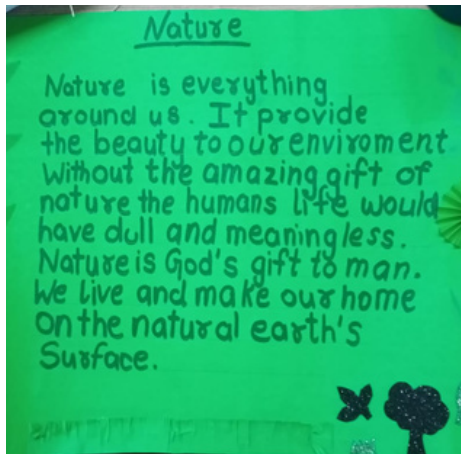 Nature
Nature is everything
around us. It provide
the beauty to our enviroment
Without the amazing gift of
nature the humans life would
have dull and meaningless.
Nature is God's gift to man.
We live and make our home
on the natural earth's
Surface.